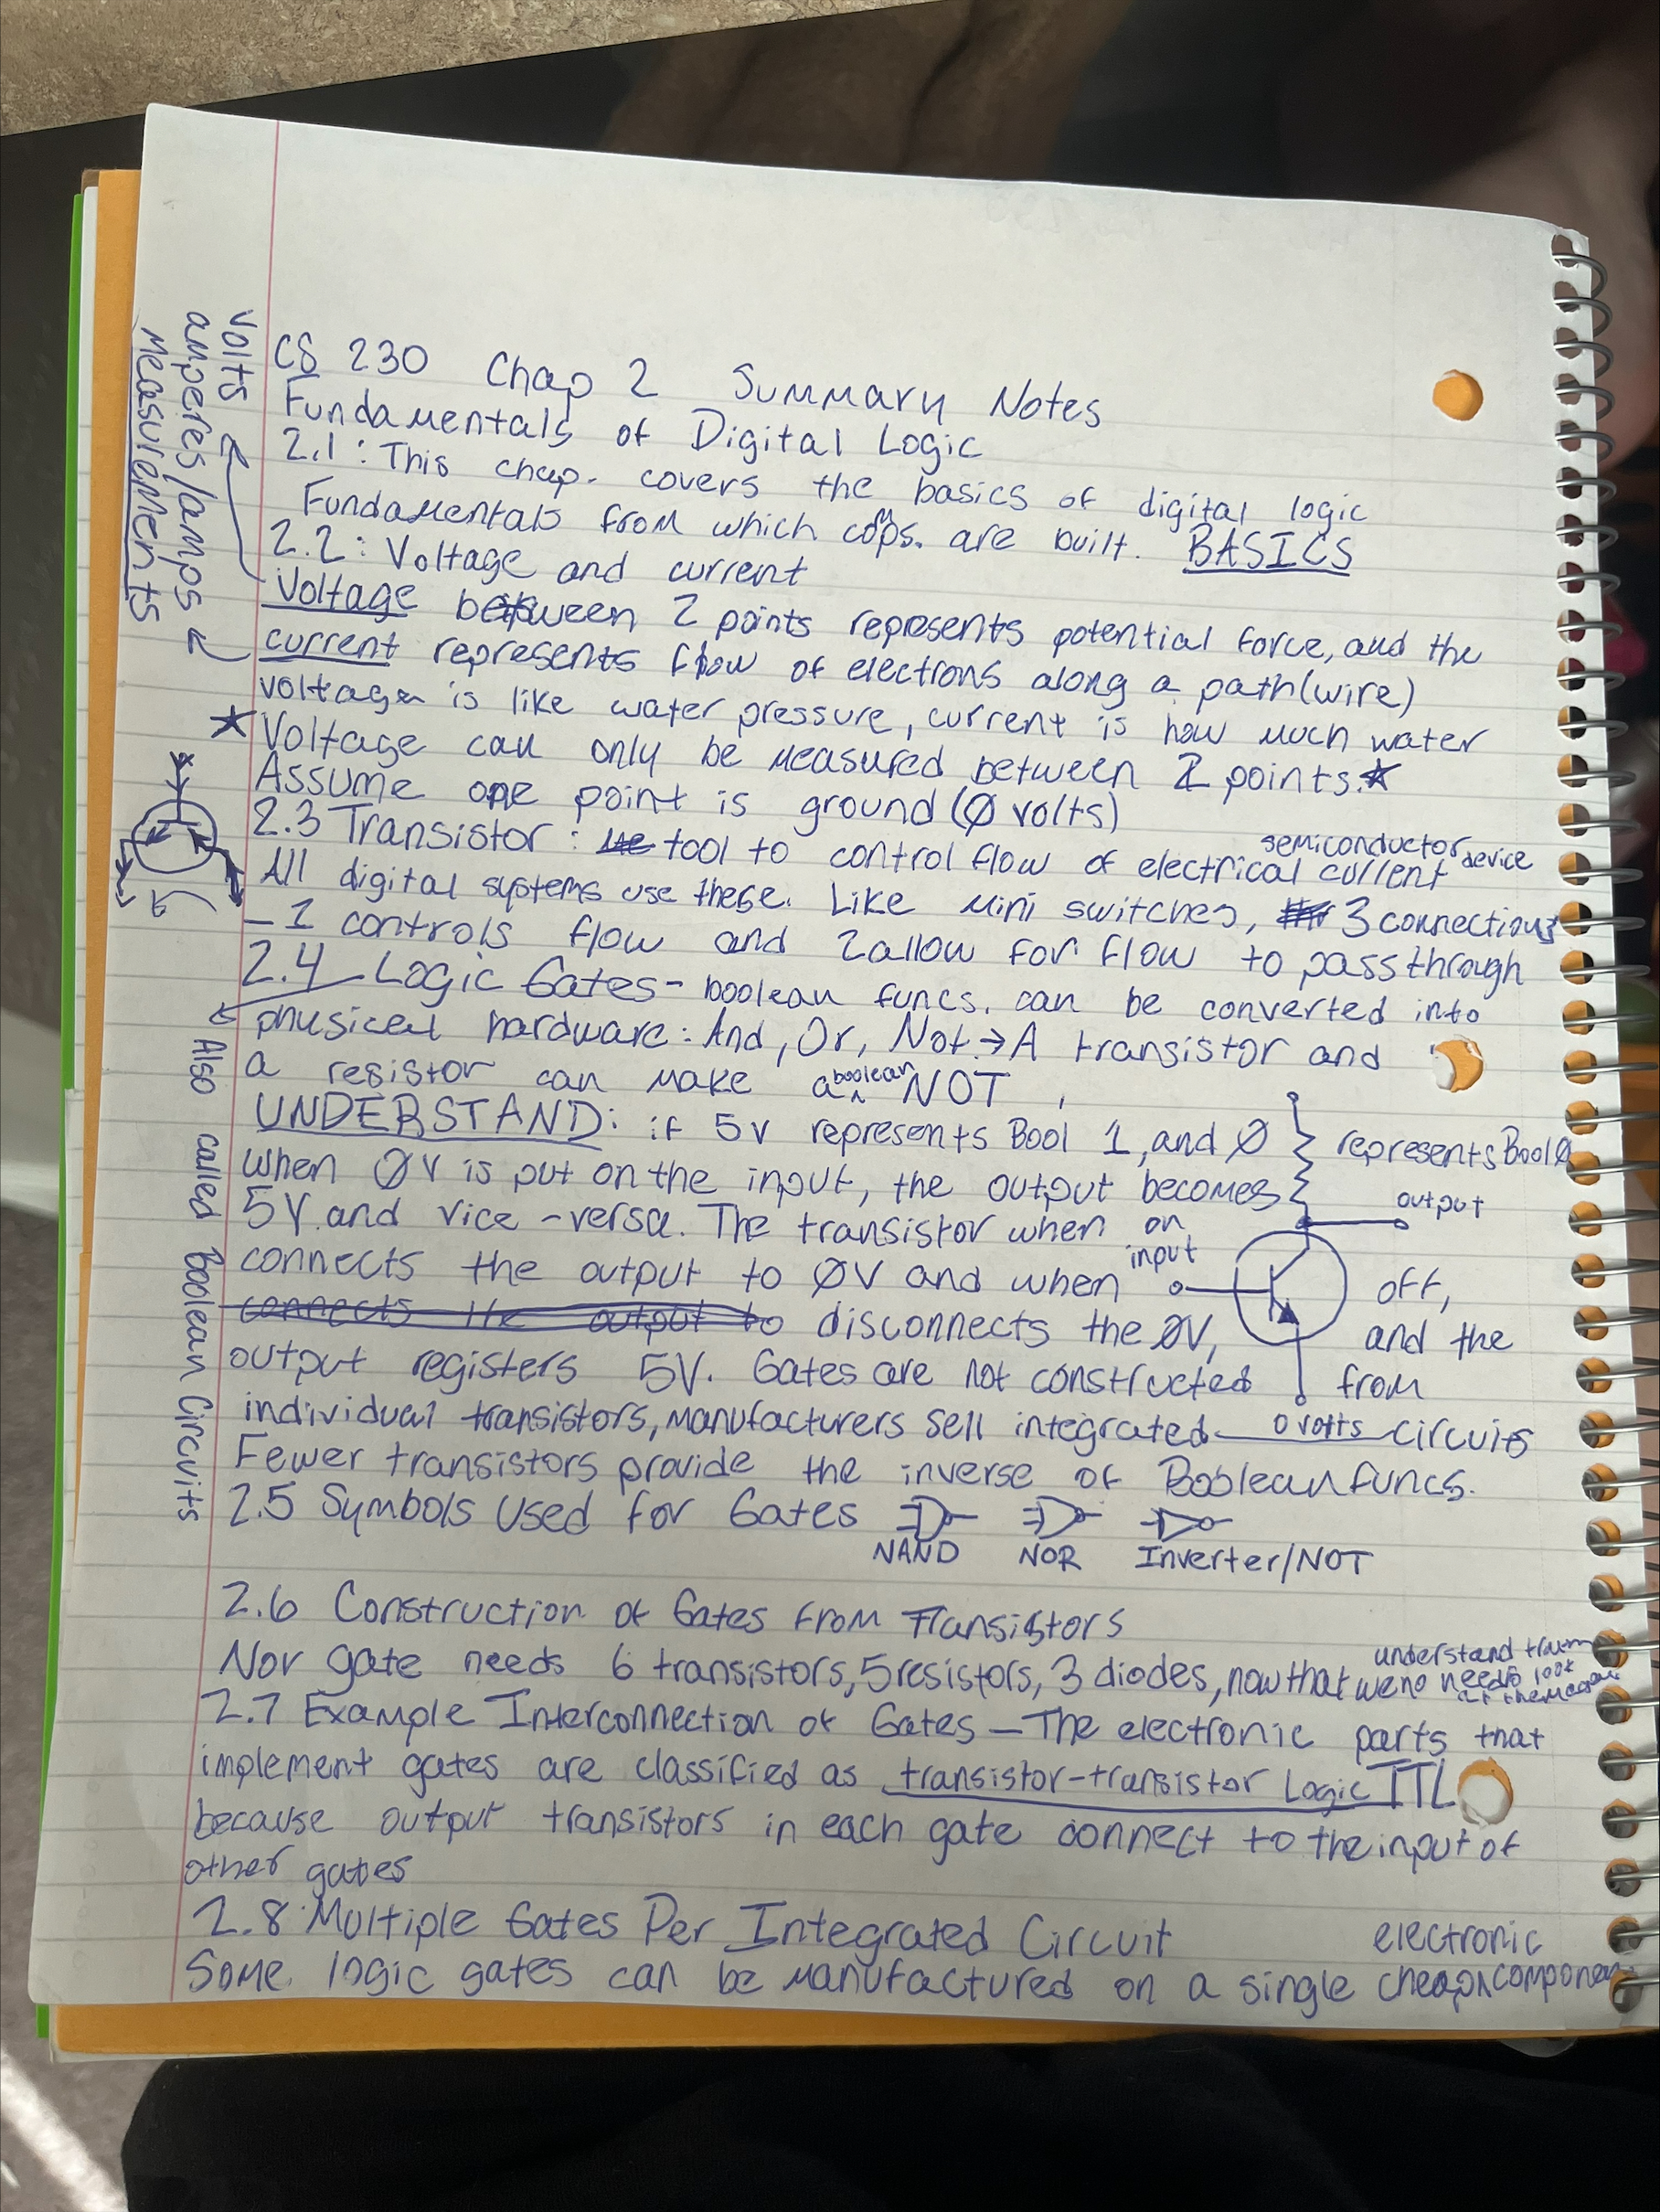 CS 230 Chap 2 Summary Notes
Fundamentals of Digital Logic
2.1: This chap. covers the basics of digital logic
Fundamentals from which comps. are built. BASICS
2.2: Voltage and current
Voltage between 2 points represents potential force, and the
current represents flow of electrons along a path (wire)
voltage is like water pressure, current is how much water
★ Voltage can only be measured between 2 points. ★
Assume one point is ground (Ø volts)
2.3 Transistor: tool to control flow of electrical current
semiconductor device
All digital systems use these. Like mini switches, 3 connections
- 1 controls flow and 2 allow for flow to pass through
2.4 Logic Gates - boolean funcs. can be converted into
physical hardware: And, Or, Not. → A transistor and
a resistor can make a boolean NOT
UNDERSTAND: if 5v represents Bool 1, and Ø represents Bool Ø
when ØV is put on the input, the output becomes
5V and vice-versa. The transistor when on
connects the output to ØV and when off,
connects the output to disconnects the ØV, and the
output registers 5V. Gates are not constructed from
individual transistors, manufacturers sell integrated circuits
Fewer transistors provide the inverse of Boolean funcs.
output
input
0 volts
2.5 Symbols Used for Gates
NAND NOR Inverter/NOT
2.6 Construction of Gates from Transistors
Nor gate needs 6 transistors, 5 resistors, 3 diodes, now that we
understand
no need
look
at
2.7 Example Interconnection of Gates - The electronic parts that
implement gates are classified as transistor-transistor Logic TTL
because output transistors in each gate connect to the input of
other gates
2.8 Multiple Gates Per Integrated Circuit
Some logic gates can be manufactured on a single cheap electronic
Volts
amperes/amps
Measurements
Also called Boolean Circuits